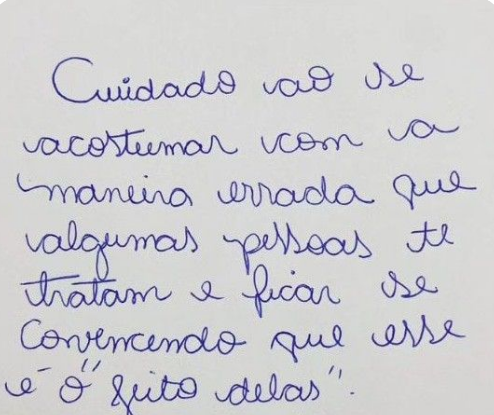 Cuidado ao se
acostumar com a
maneira errada que
algumas pessoas te
tratam e ficar se
convencendo que esse
é o "jeito delas".